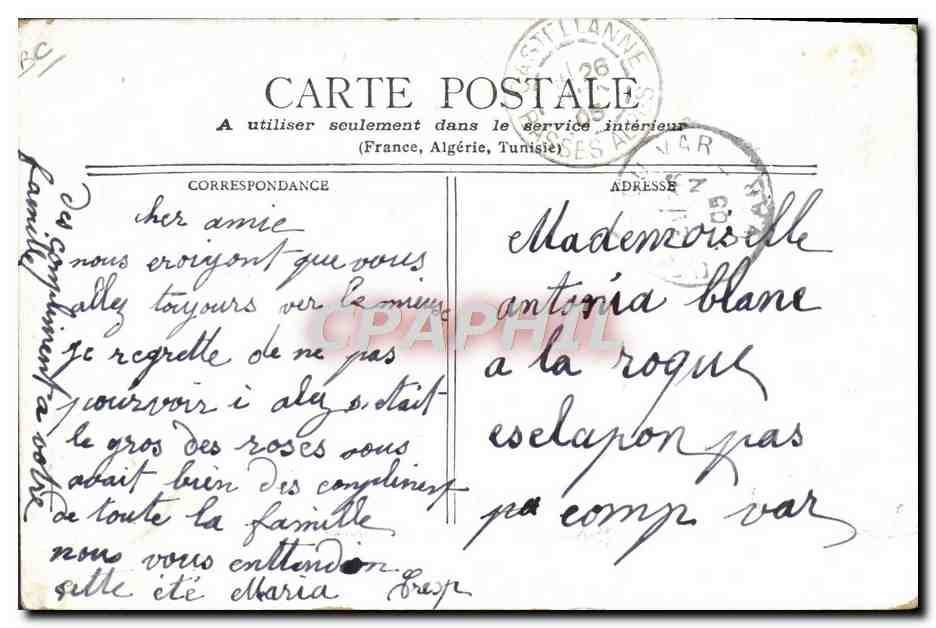 BC
CARTE POSTALE
A utiliser seulement dans le service intérieur
(France, Algérie, Tunisie)
CASTELLANNE
26
05
BASSES ALPES
VAR
05
CORRESPONDANCE
cher amie
nous croiyont que vous
allez toujours ver le mieux
je regrette de ne pas
pourvoir i alez s etait
le gros des roses vous
avait bien des compliment
de toute la famille
nous vous enttendion
cette été Maria
des compliment a votre
famille
ADRESSE
Mademoiselle
antonia blanc
a la roque
esclapon pas
pa comp var
CPAPHIL